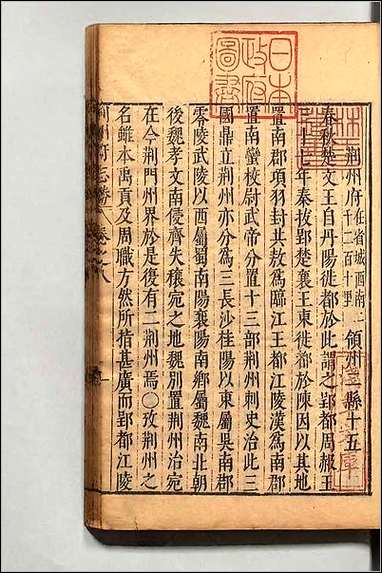 日本
政府
圖書
荊州府在省城西南二千二百十里領州 縣十五
春秋楚文王自丹陽徙都於此謂之郢都周赧王
三十七年秦拔郢楚襄王東徙都於陳因以其地
置南郡項羽封共敖為臨江王都江陵漢為南郡
置南蠻校尉武帝分置十三部荊州刺史治此三
國鼎立荊州亦分為三長沙桂陽以東屬吳南郡
零陵武陵以西屬蜀南陽襄陽南鄉屬魏南北朝
後魏孝文南侵齊失穰宛之地魏別置荊州治宛
在今荊門州界於是復有二荊州焉〇攷荊州之
名雖本禹貢及周職方然所指甚廣而郢都江陵